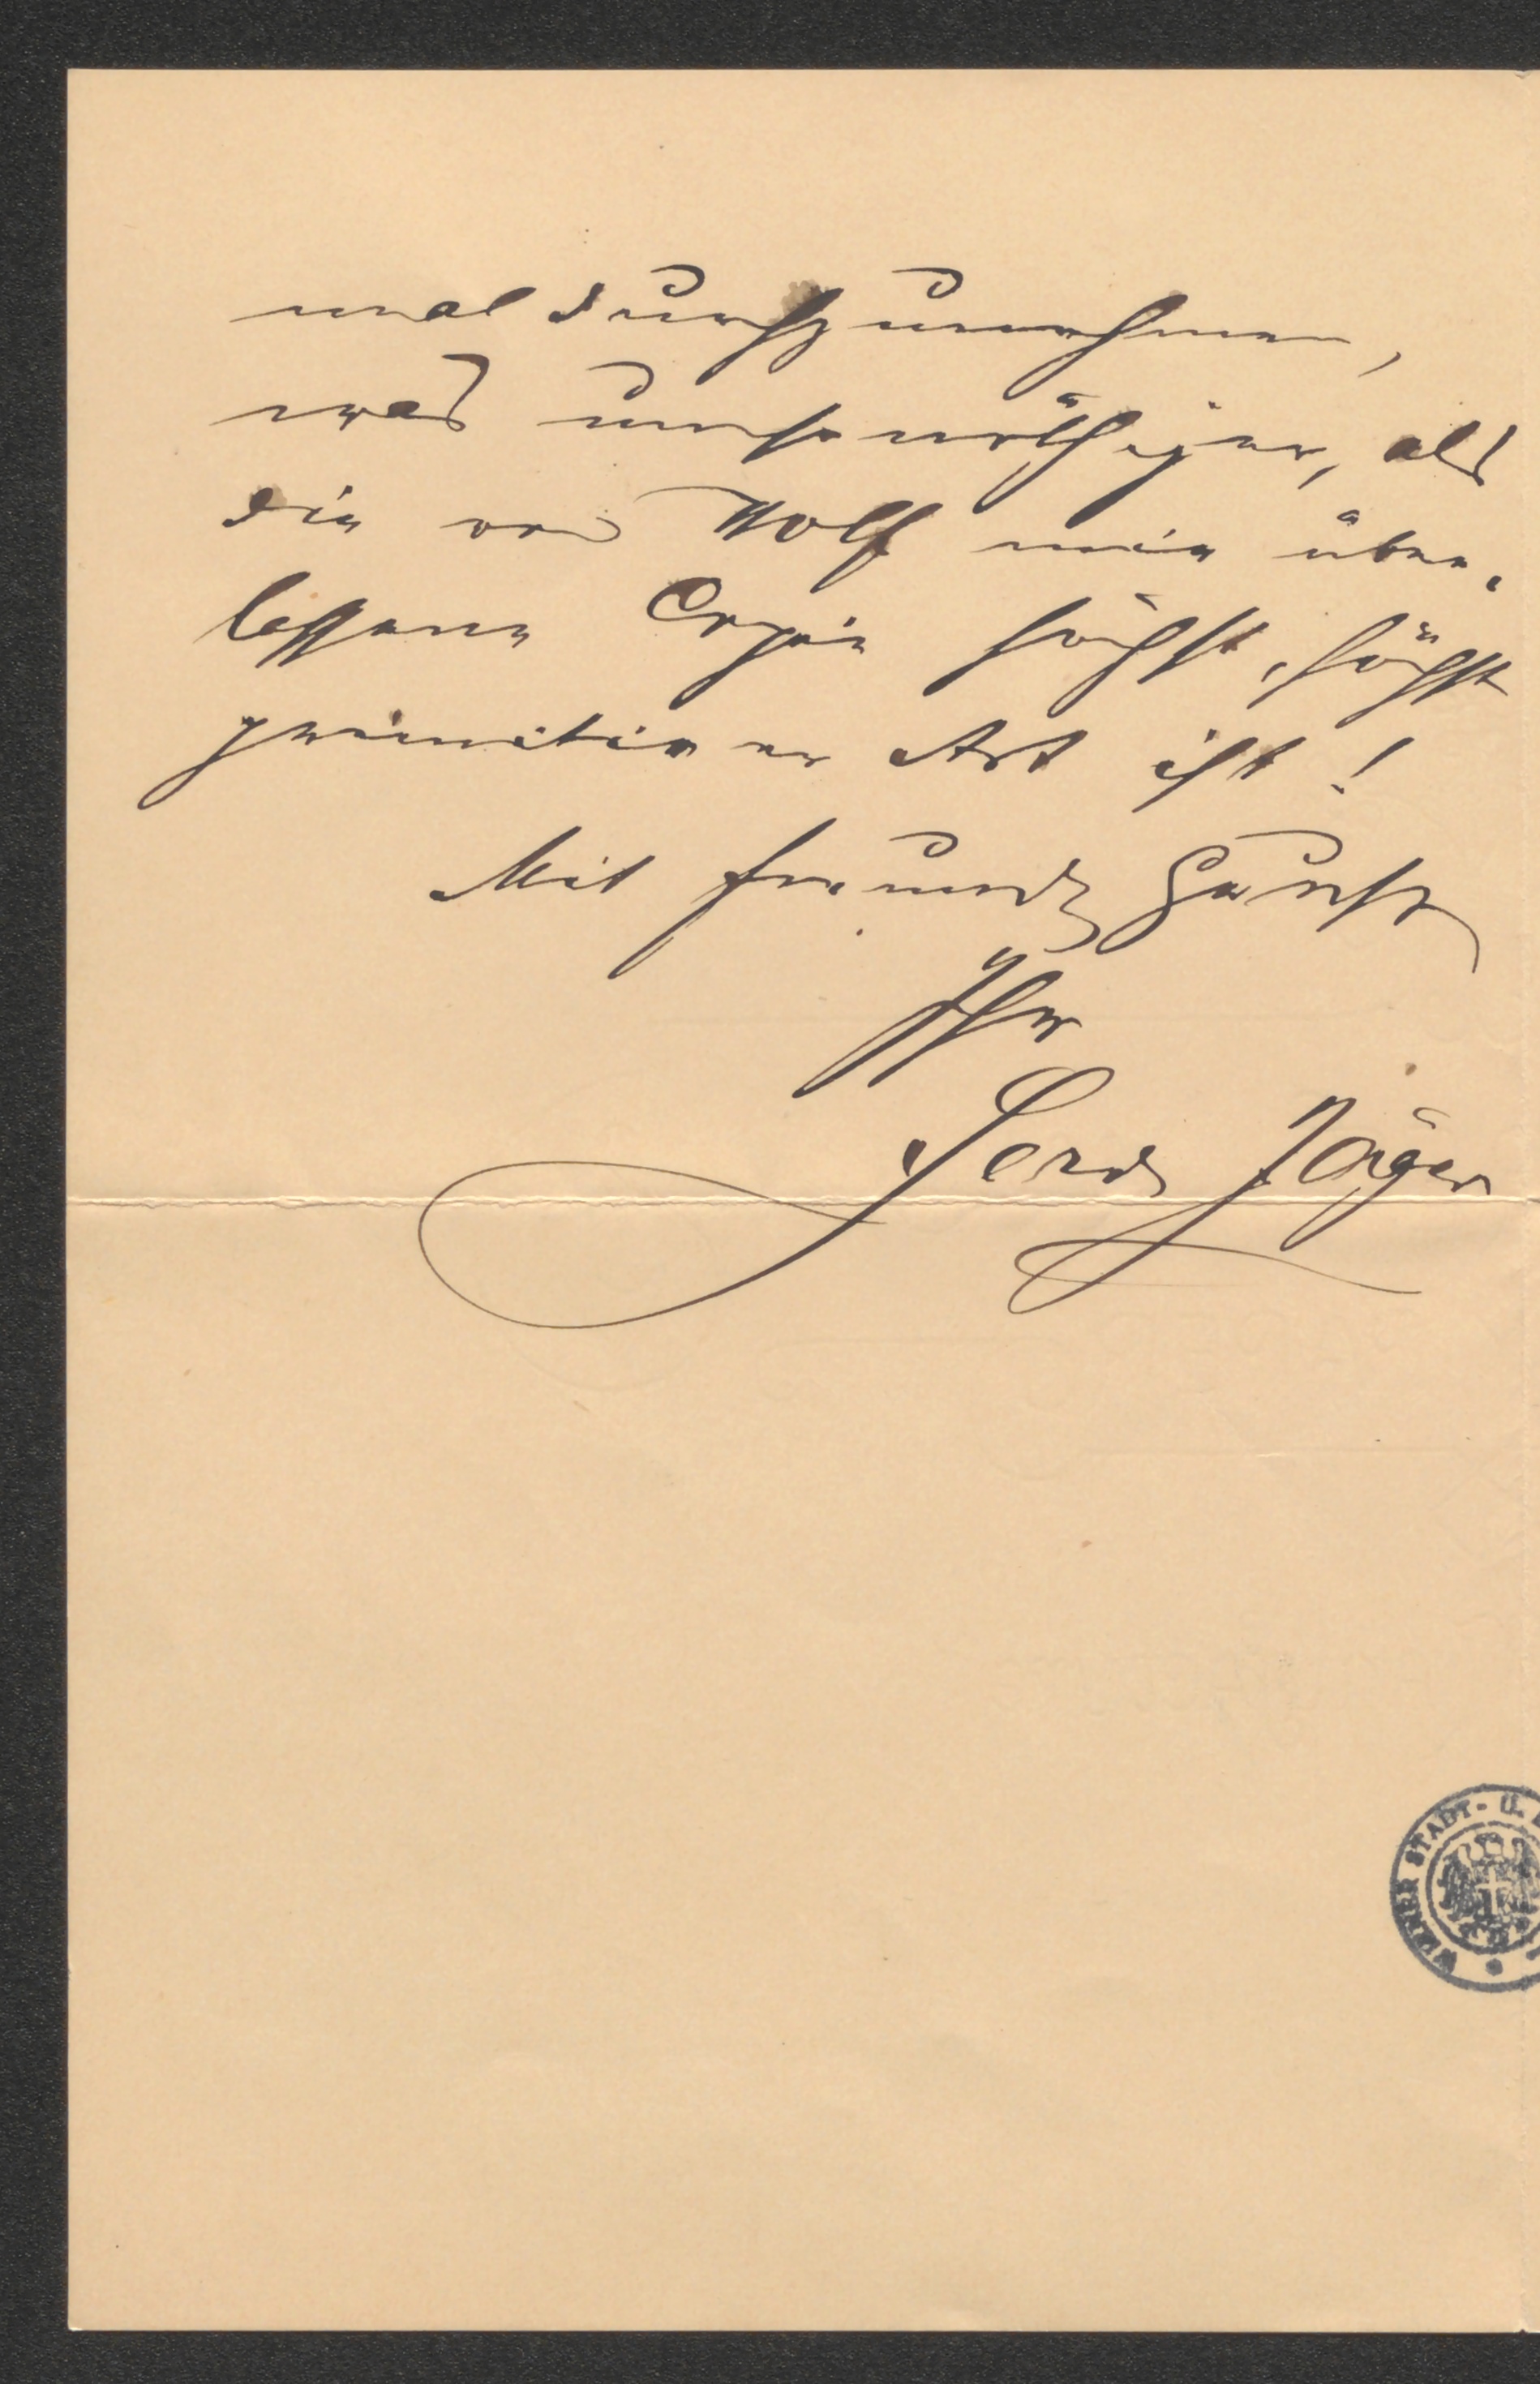 mal durchzunehmen,
was umso nöthiger, als
die von Wolf mir über-
lassene Copie höchst, höchst
primitiver Art ist!
Mit freundl Gruß
Ihr
Ferd Jäger
WIENER STADT- U.